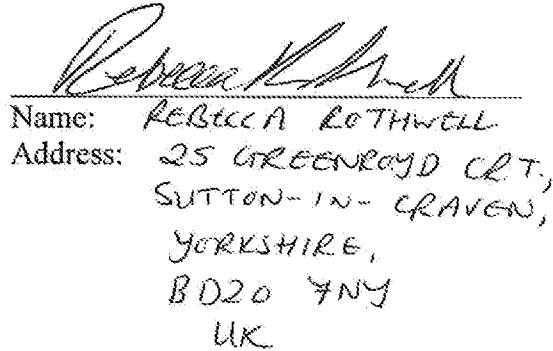 Rebecca Rothwell
Name: REBECCA ROTHWELL
Address: 25 GREENROYD CRT.,
SUTTON-IN-CRAVEN,
YORKSHIRE,
BD20 7NY
UK